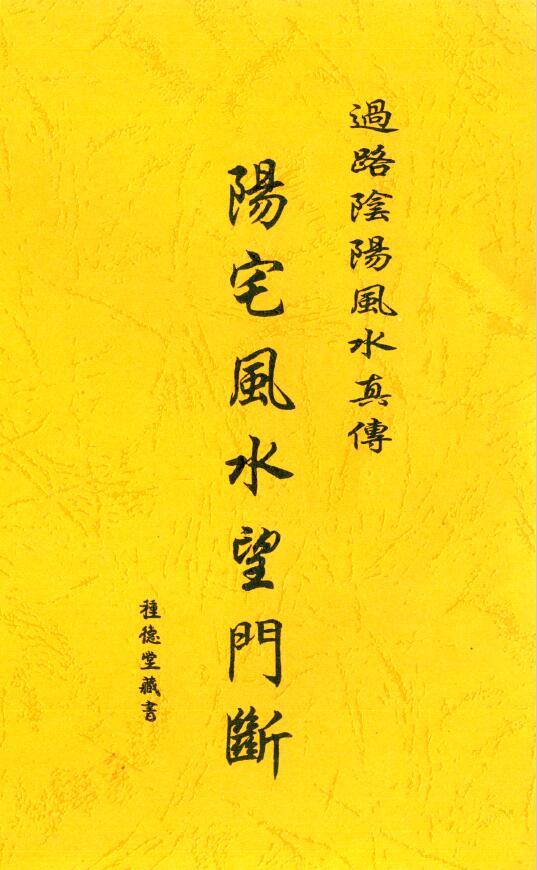 過路陰陽風水真傳
陽宅風水望門斷
種德堂藏書